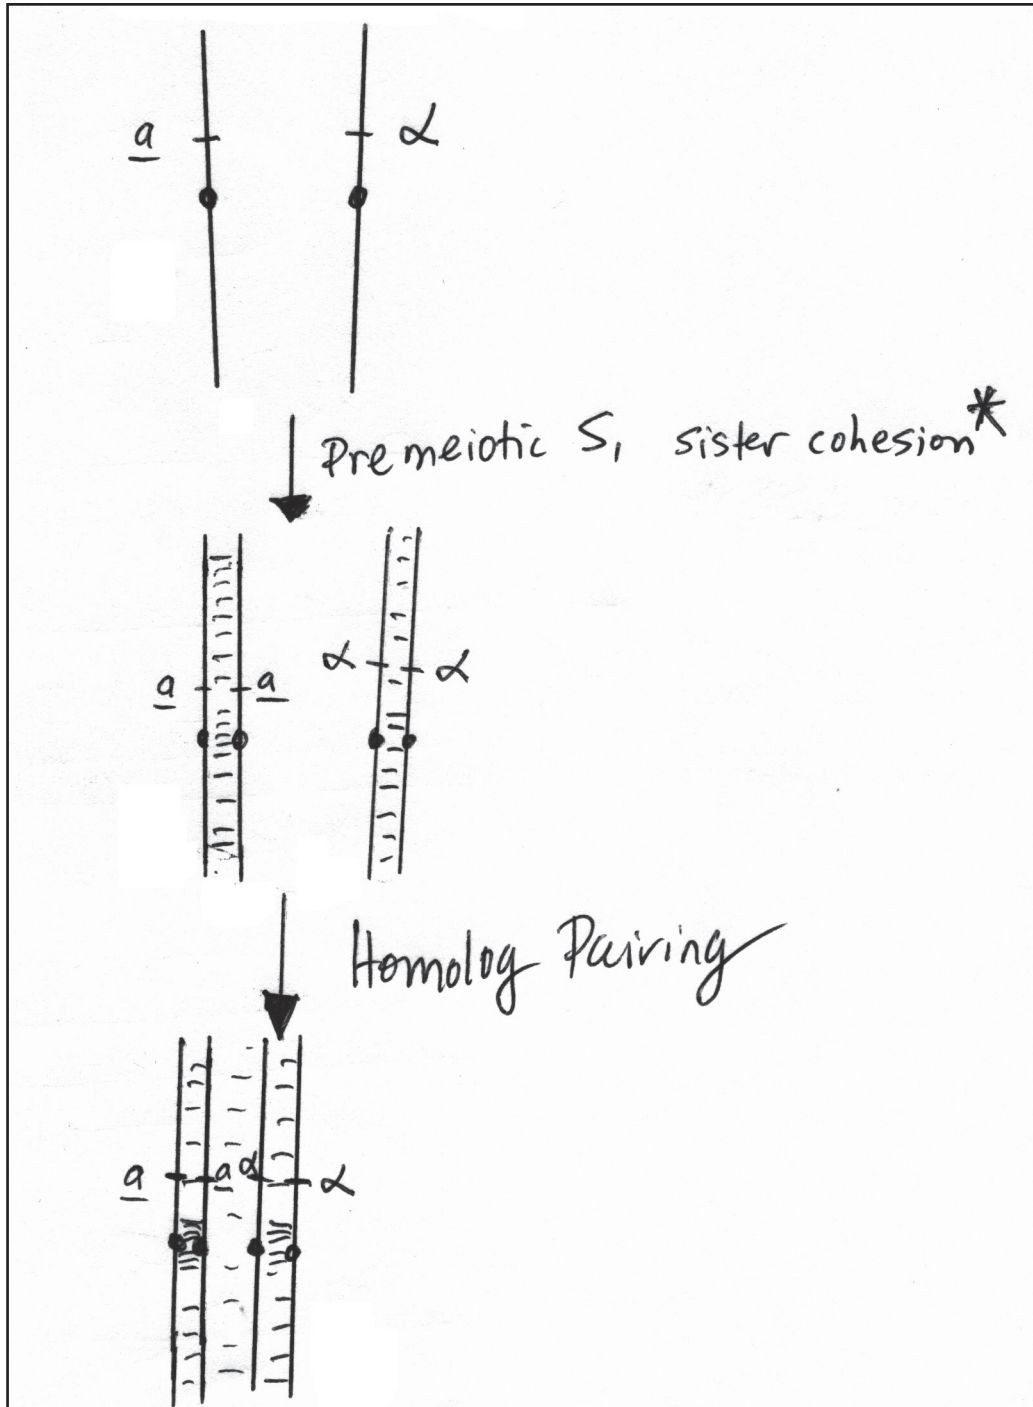 a α
Premeiotic S, sister cohesion*
α α
a a
Homolog Pairing
a a α α